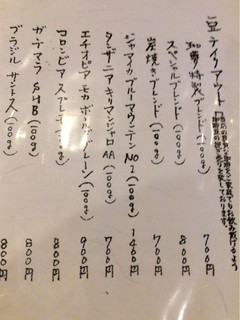 豆テイクアウト
特製ブレンド(100g) 700円
スペシャルブレンド(100g) 800円
炭焼きブレンド(100g) 700円
ジャマイカブルーマウンテンNO1(100g) 1400円
タンザニアキリマンジャロAA(100g) 700円
エチオピアモカ(100g) 900円
コロンビアスプレモ(100g) 800円
ガテマラSHB(100g) 800円
ブラジルサントス(100g) 800円